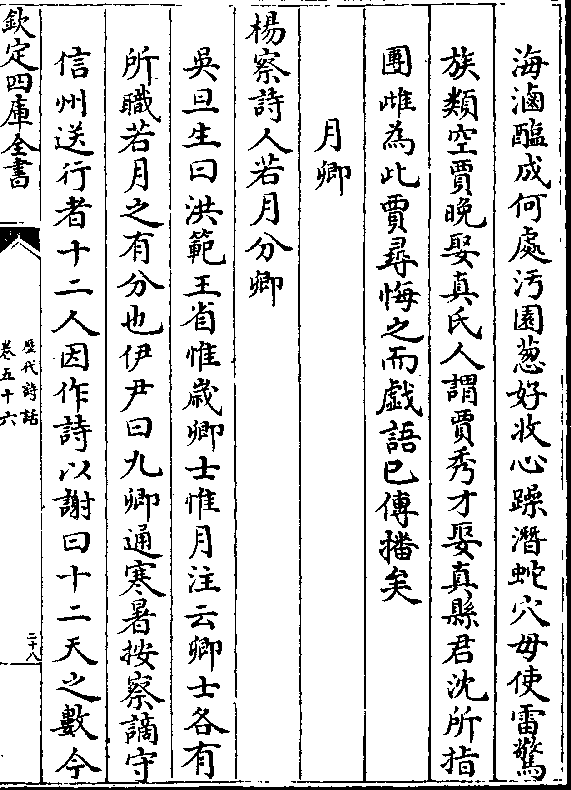 海滷醢成何處汚園葱好收心躁潛蛇穴毋使雷驚
族類空賈晚娶真氏人謂賈秀才娶真縣君沈所指
團雌為此賈尋悔之而戲語已傳播矣
月卿
楊察詩人若月分卿
吳旦生曰洪範王省惟歲卿士惟月注云卿士各有
所職若月之有分也伊尹曰九卿通寒暑按察謫守
信州送行者十二人因作詩以謝曰十二天之數今
欽定四庫全書
歷代詩話
卷五十六
二十八